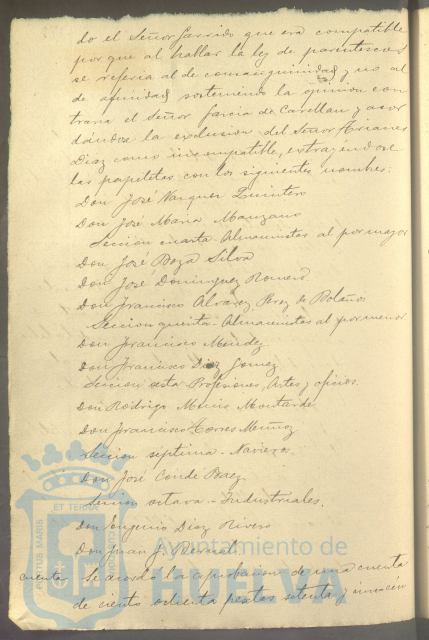 do el Señor Garrido que era compatible
por que al hallar la ley de parentescos
se referia al de consanguinidad y no al
de afinidad sosteniendo la opinion con
traria el Señor Garcia de Carellan y acor
dándose la exclusion del Señor Arianes
Diaz como incompatible, extrayéndose
las papeletas con los siguientes nombres:
Don José Vazquez Quintero
Don José Maria Manzano
Seccion cuarta Almacenistas al por mayor
Don José Boza Silva
Don José Dominguez Romero
Don Francisco Alvarez Perez de Bolaños
Seccion quinta - Almacenistas al por menor
Don Francisco Mendez
Don Francisco Diaz Gomez
Seccion sesta Profesiones, Artes y oficios.
Don Rodrigo Montarde
Don Francisco Torres Muñoz
Seccion septima - Navieros
Don José Conde Baez
Seccion octava - Industriales.
Don Eugenio Diaz Rivero
Don Juan J. Bernal
cuenta Se acordó la aprobacion de una cuenta
de ciento ochenta pesetas setenta y cinco
PORTUS MARIS ET TERRAE CUSTODIA
Ayuntamiento de
HUELVA